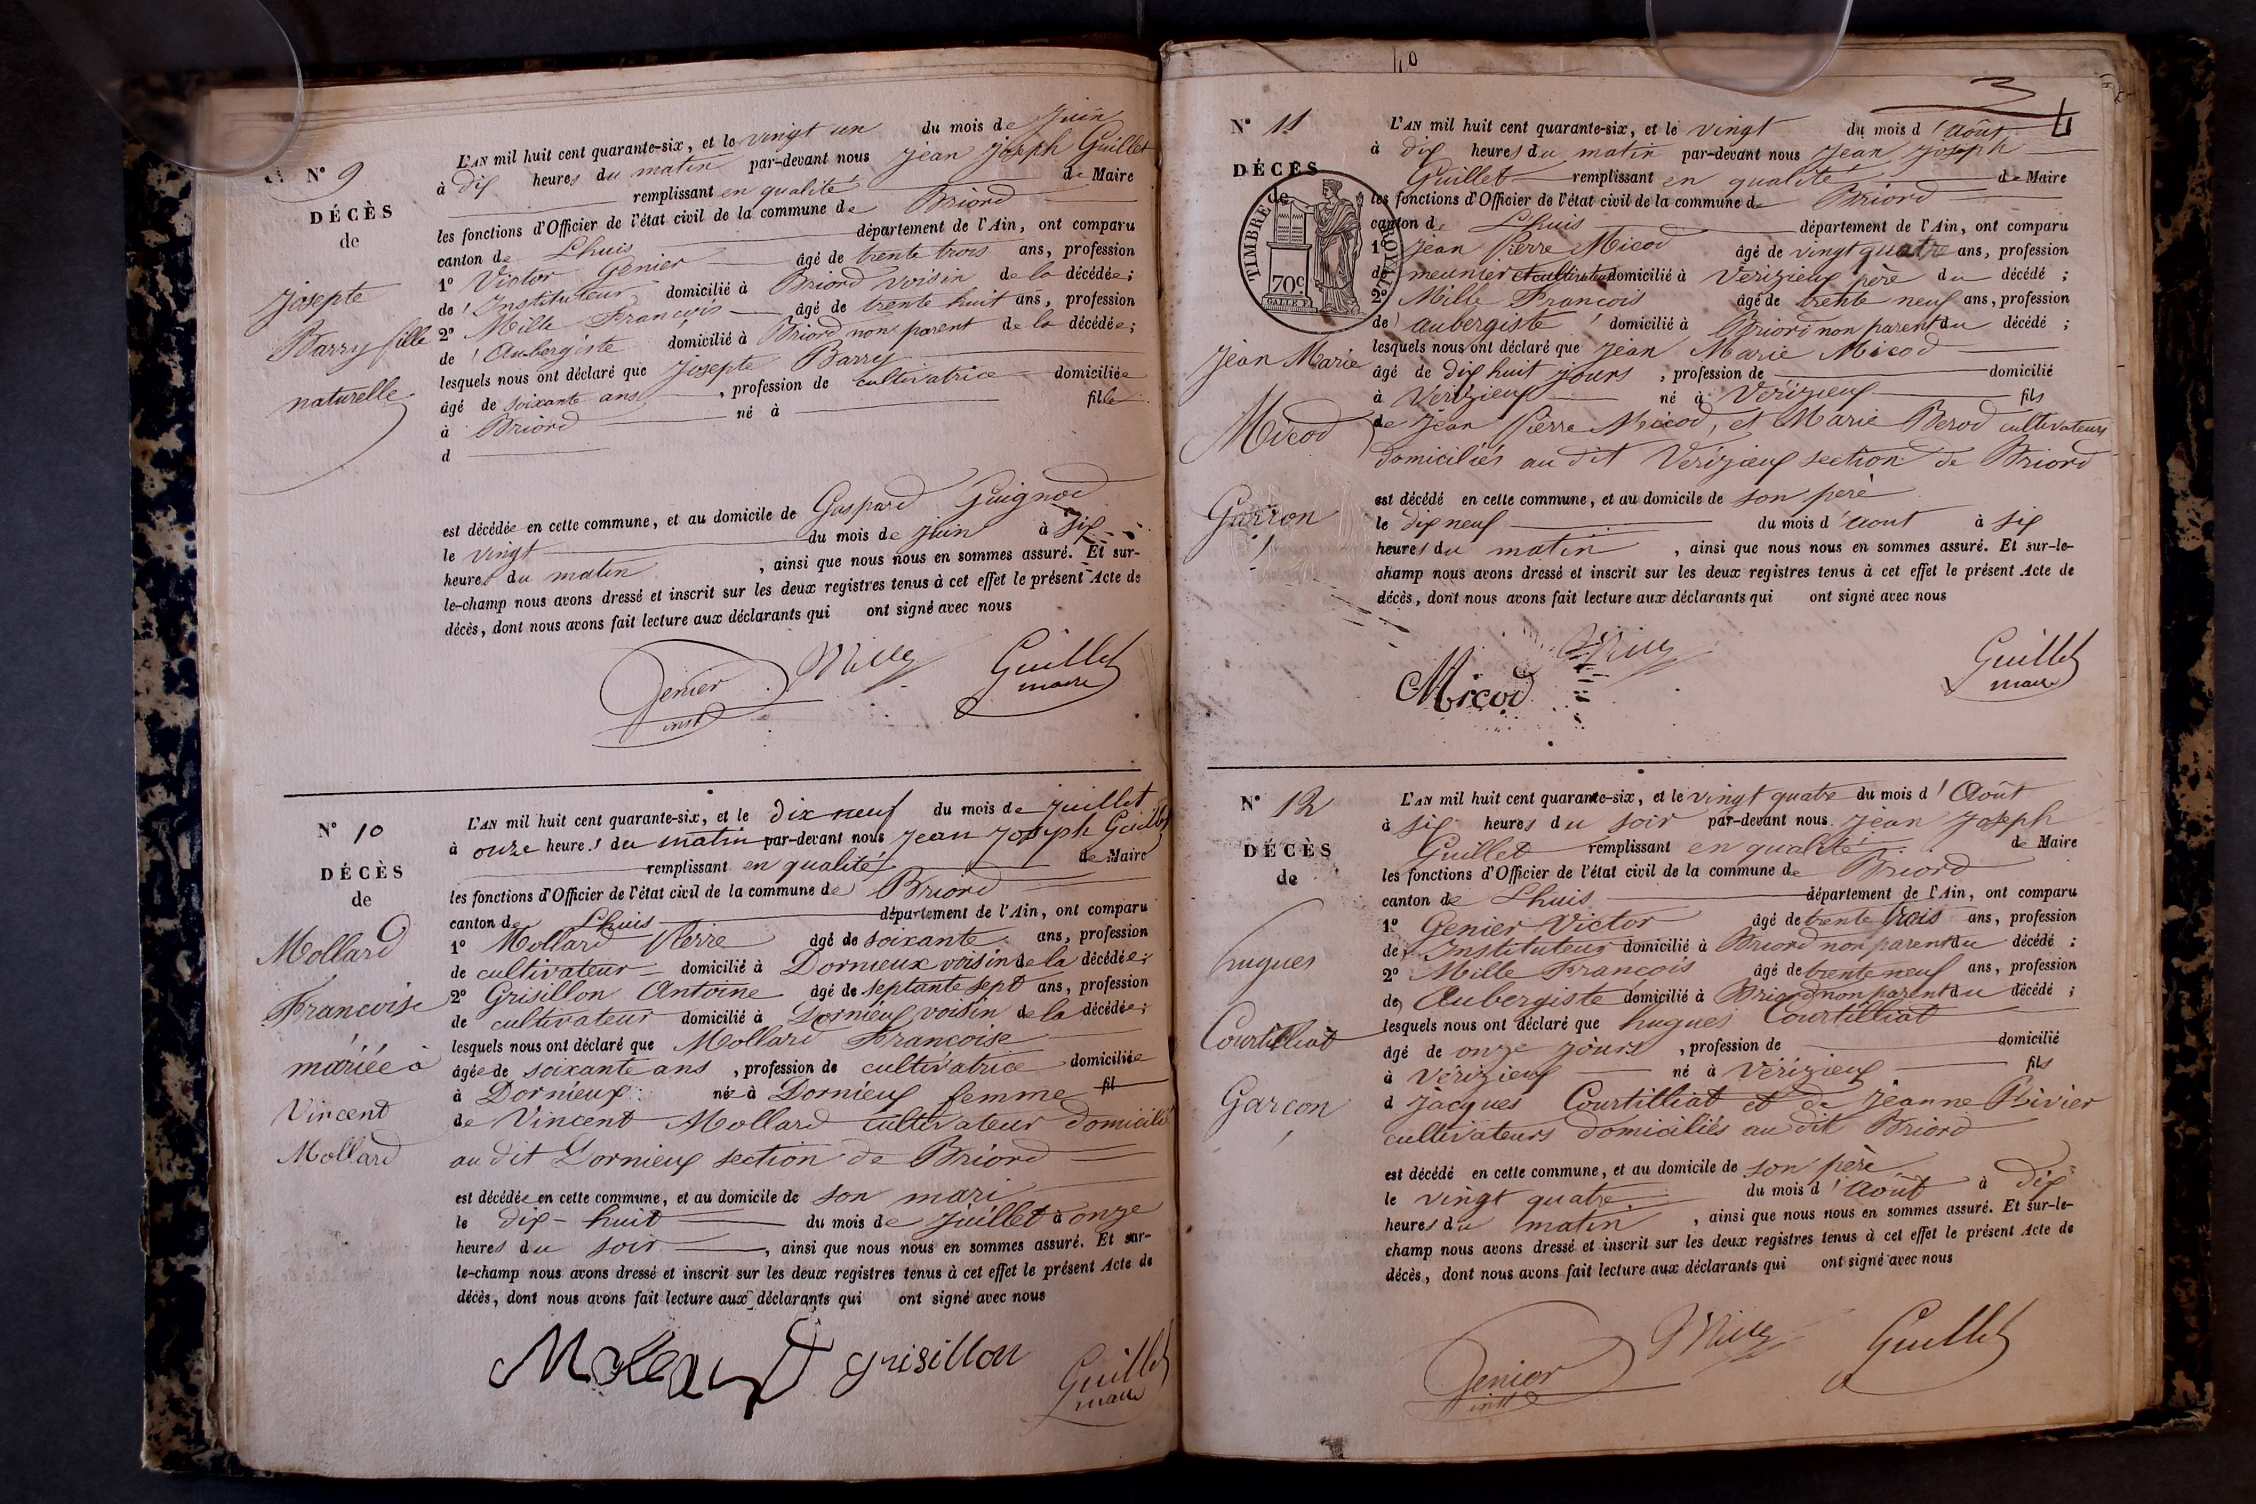 N° 9
DÉCÈS
de
Josepte
Barry fille
naturelle
L'AN mil huit cent quarante-six, et le vingt un du mois de Juin
à dix heures du matin par-devant nous Jean Joseph Guillet
remplissant en qualité de Maire
les fonctions d'Officier de l'état civil de la commune de Briord
canton de Lhuis département de l'Ain, ont comparu
1° Victor Genier âgé de trente trois ans, profession
d'Instituteur domicilié à Briord voisin de la décédée;
2° Mille François âgé de trente huit ans, profession
d'Aubergiste domicilié à Briord non parent de la décédée;
lesquels nous ont déclaré que Josepte Barry
âgé de soixante ans, profession de cultivatrice domiciliée
à Briord né à fille
d
est décédée en cette commune, et au domicile de Gaspard Guignod
le vingt du mois de Juin à six
heures du matin, ainsi que nous nous en sommes assuré. Et sur-
le-champ nous avons dressé et inscrit sur les deux registres tenus à cet effet le présent Acte de
décès, dont nous avons fait lecture aux déclarants qui ont signé avec nous
Genier Mille Guillet
inst maire
N° 10
DÉCÈS
de
Mollard
Francoise
mariée à
Vincent
Mollard
L'AN mil huit cent quarante-six, et le dix neuf du mois de Juillet
à onze heures du matin par-devant nous Jean Joseph Guillet
remplissant en qualité de Maire
les fonctions d'Officier de l'état civil de la commune de Briord
canton de Lhuis département de l'Ain, ont comparu
1° Mollard Pierre âgé de soixante ans, profession
de cultivateur domicilié à Dornieux voisin de la décédée;
2° Grisillon Antoine âgé de septante sept ans, profession
de cultivateur domicilié à Dornieux voisin de la décédée;
lesquels nous ont déclaré que Mollard Francoise
âgée de soixante ans, profession de cultivatrice domiciliée
à Dornieux née à Dornieux femme fil
de Vincent Mollard cultivateur domicilié
au dit Dornieux section de Briord
est décédée en cette commune, et au domicile de son mari
le dix-huit du mois de Juillet à onze
heures du soir, ainsi que nous nous en sommes assuré. Et sur-
le-champ nous avons dressé et inscrit sur les deux registres tenus à cet effet le présent Acte de
décès, dont nous avons fait lecture aux déclarants qui ont signé avec nous
grisillon Guillet
maire
40
3
4
N° 11
DÉCÈS
de
TIMBRE ROYAL
70c
Jean Marie
Micod
Garçon
L'AN mil huit cent quarante-six, et le vingt du mois d'Août
à dix heures du matin par-devant nous Jean Joseph
Guillet remplissant en qualité de Maire
les fonctions d'Officier de l'état civil de la commune de Briord
canton de Lhuis département de l'Ain, ont comparu
1° Jean Pierre Micod âgé de vingt quatre ans, profession
de meunier et cultivateur domicilié à Vérizieux père du décédé;
2° Mille François âgé de trente neuf ans, profession
d'aubergiste domicilié à Briord non parent du décédé;
lesquels nous ont déclaré que Jean Marie Micod
âgé de dix huit jours, profession de domicilié
à Vérizieux né à Vérizieux fils
de Jean Pierre Micod, et Marie Berod cultivateurs
domiciliés au dit Vérizieux section de Briord
est décédé en cette commune, et au domicile de son père
le dix neuf du mois d'aout à six
heures du matin, ainsi que nous nous en sommes assuré. Et sur-le-
champ nous avons dressé et inscrit sur les deux registres tenus à cet effet le présent Acte de
décès, dont nous avons fait lecture aux déclarants qui ont signé avec nous
Micod Mille Guillet
maire
N° 12
DÉCÈS
de
hugues
Courtilliat
Garcon
L'AN mil huit cent quarante-six, et le vingt quatre du mois d'Août
à six heures du soir par-devant nous Jean Joseph
Guillet remplissant en qualité de Maire
les fonctions d'Officier de l'état civil de la commune de Briord
canton de Lhuis département de l'Ain, ont comparu
1° Genier Victor âgé de trente trois ans, profession
d'Instituteur domicilié à Briord non parent du décédé;
2° Mille François âgé de trente neuf ans, profession
d'Aubergiste domicilié à Briord non parent du décédé;
lesquels nous ont déclaré que hugues Courtilliat
âgé de onze jours, profession de domicilié
à Vérizieux né à Vérizieux fils
d Jacques Courtilliat et de Jeanne Rivier
cultivateurs domiciliés au dit Briord
est décédé en cette commune, et au domicile de son père
le vingt quatre du mois d'Août à dix
heures du matin, ainsi que nous nous en sommes assuré. Et sur-le-
champ nous avons dressé et inscrit sur les deux registres tenus à cet effet le présent Acte de
décès, dont nous avons fait lecture aux déclarants qui ont signé avec nous
Genier Mille Guillet
inst